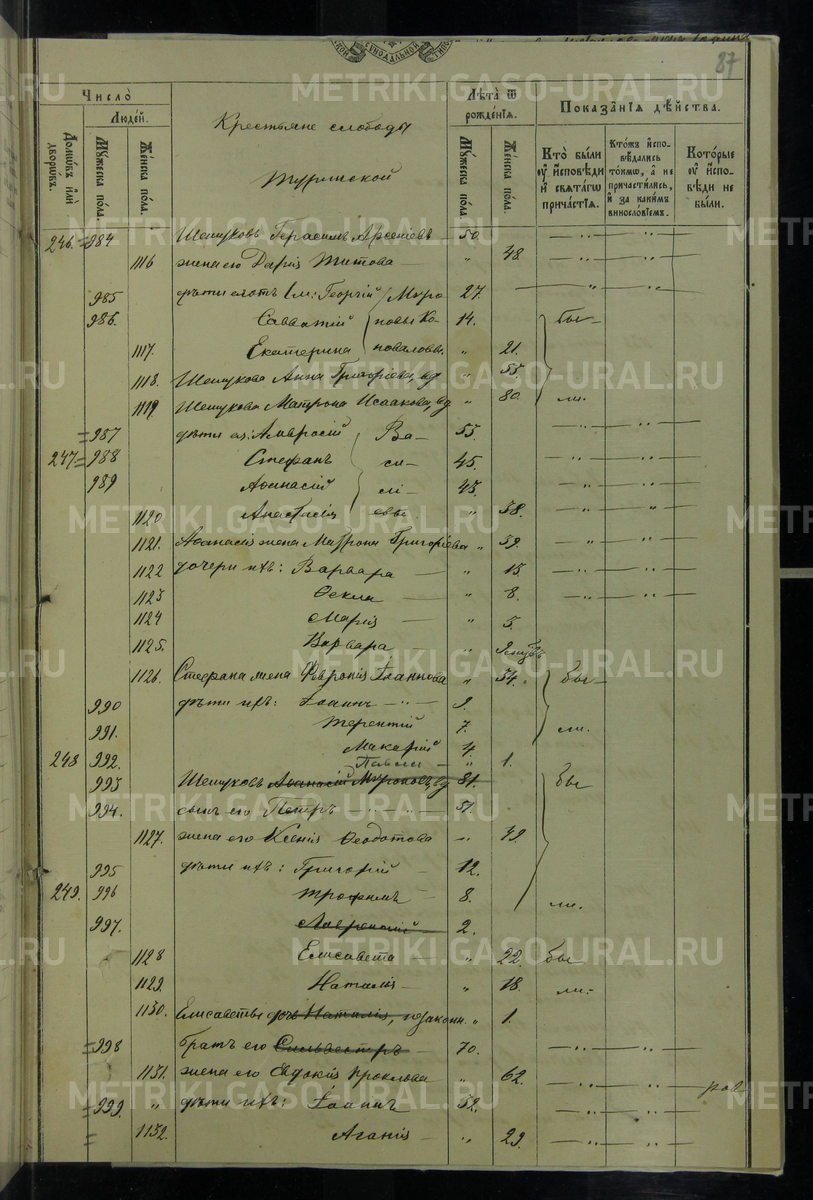 87
Число̀
Людей.
Домѡвъ илѝ дворѡвъ.
Мꙋжеска пола.
Женска пола.
Крестьяне слободы
Туринской
Лѣта̀ ѿ рожде́нїѧ.
Мꙋжеска пола.
Женска пола.
Показа́нїѧ дѣ́йства.
Кто̀ бы́ли ᲂу҆ и҆сповѣди и҆ свѧта́гѡ прича́стїѧ.
Кто́жъ и҆сповѣдались то́кмѡ, а҆ не причасти́лись, и҆ за каки́мъ винословїемъ.
Кото́рые ᲂу҆ и҆сповѣди не бы́ли.
246. 984 Шешуковъ Герасимъ Арсеніевъ 50. — " — " —
1116 жена его Дарія Титова " 48 — " — " —
985 дѣти Георгій Миро 27. — " —
986. Савватій новы Ко- 14. бы-
1117. Екатерина новаловы. " 21.
1118. Шешукова Анна Григоріева, вд " 55
1119 Шешукова Матрона Исаакова, вд " 80. ли.
987 дѣти ея: Амвросій Ва- 55. — " — " —
247. 988 Стефанъ си- 45. — " — " —
989 Аѳанасій лі- 43. — " — " —
1120 Анастасія евы " 58. — " — " —
1121. Аѳанасія жена Матрона Григоріева " 59. — " — " —
1122 дочери ихъ: Варвара " 15. — " — " —
1123 Ѳекла " 8. — " — " —
1124 Марія " 5.
1125. Варвара "
1126. Стефана жена Февронія Іоаннова " 34. бы-
990 дѣти ихъ: Іоаннъ — " — 9.
991. Терентій 7. ли.
992. Макарій 4.
248 Павелъ " 1.
993 Шешуковъ Аѳанасій Мироновъ, вд 81. бы
994. сынъ его Петръ 51.
1127. жена его Ксенія Ѳеодотова " 49.
995 дѣти ихъ: Григорій 12.
249. 996 Трофимъ 8. ли.
997. Лаврентій 2.
1128 Елисавета " 22. бы
1129. Наталія " 18. ли.
1130. Елисаветы дчь Наталія, незакон. " 1.
998 братъ его Сильвестръ 70. — " — " —
1131. жена его Евдокія Проклова " 62. — " — " —
999. " дѣти ихъ: Іоаннъ 32. — " — " —
1132. Агапія " 29. — " — " —
METRIKI.GASO-URAL.RU